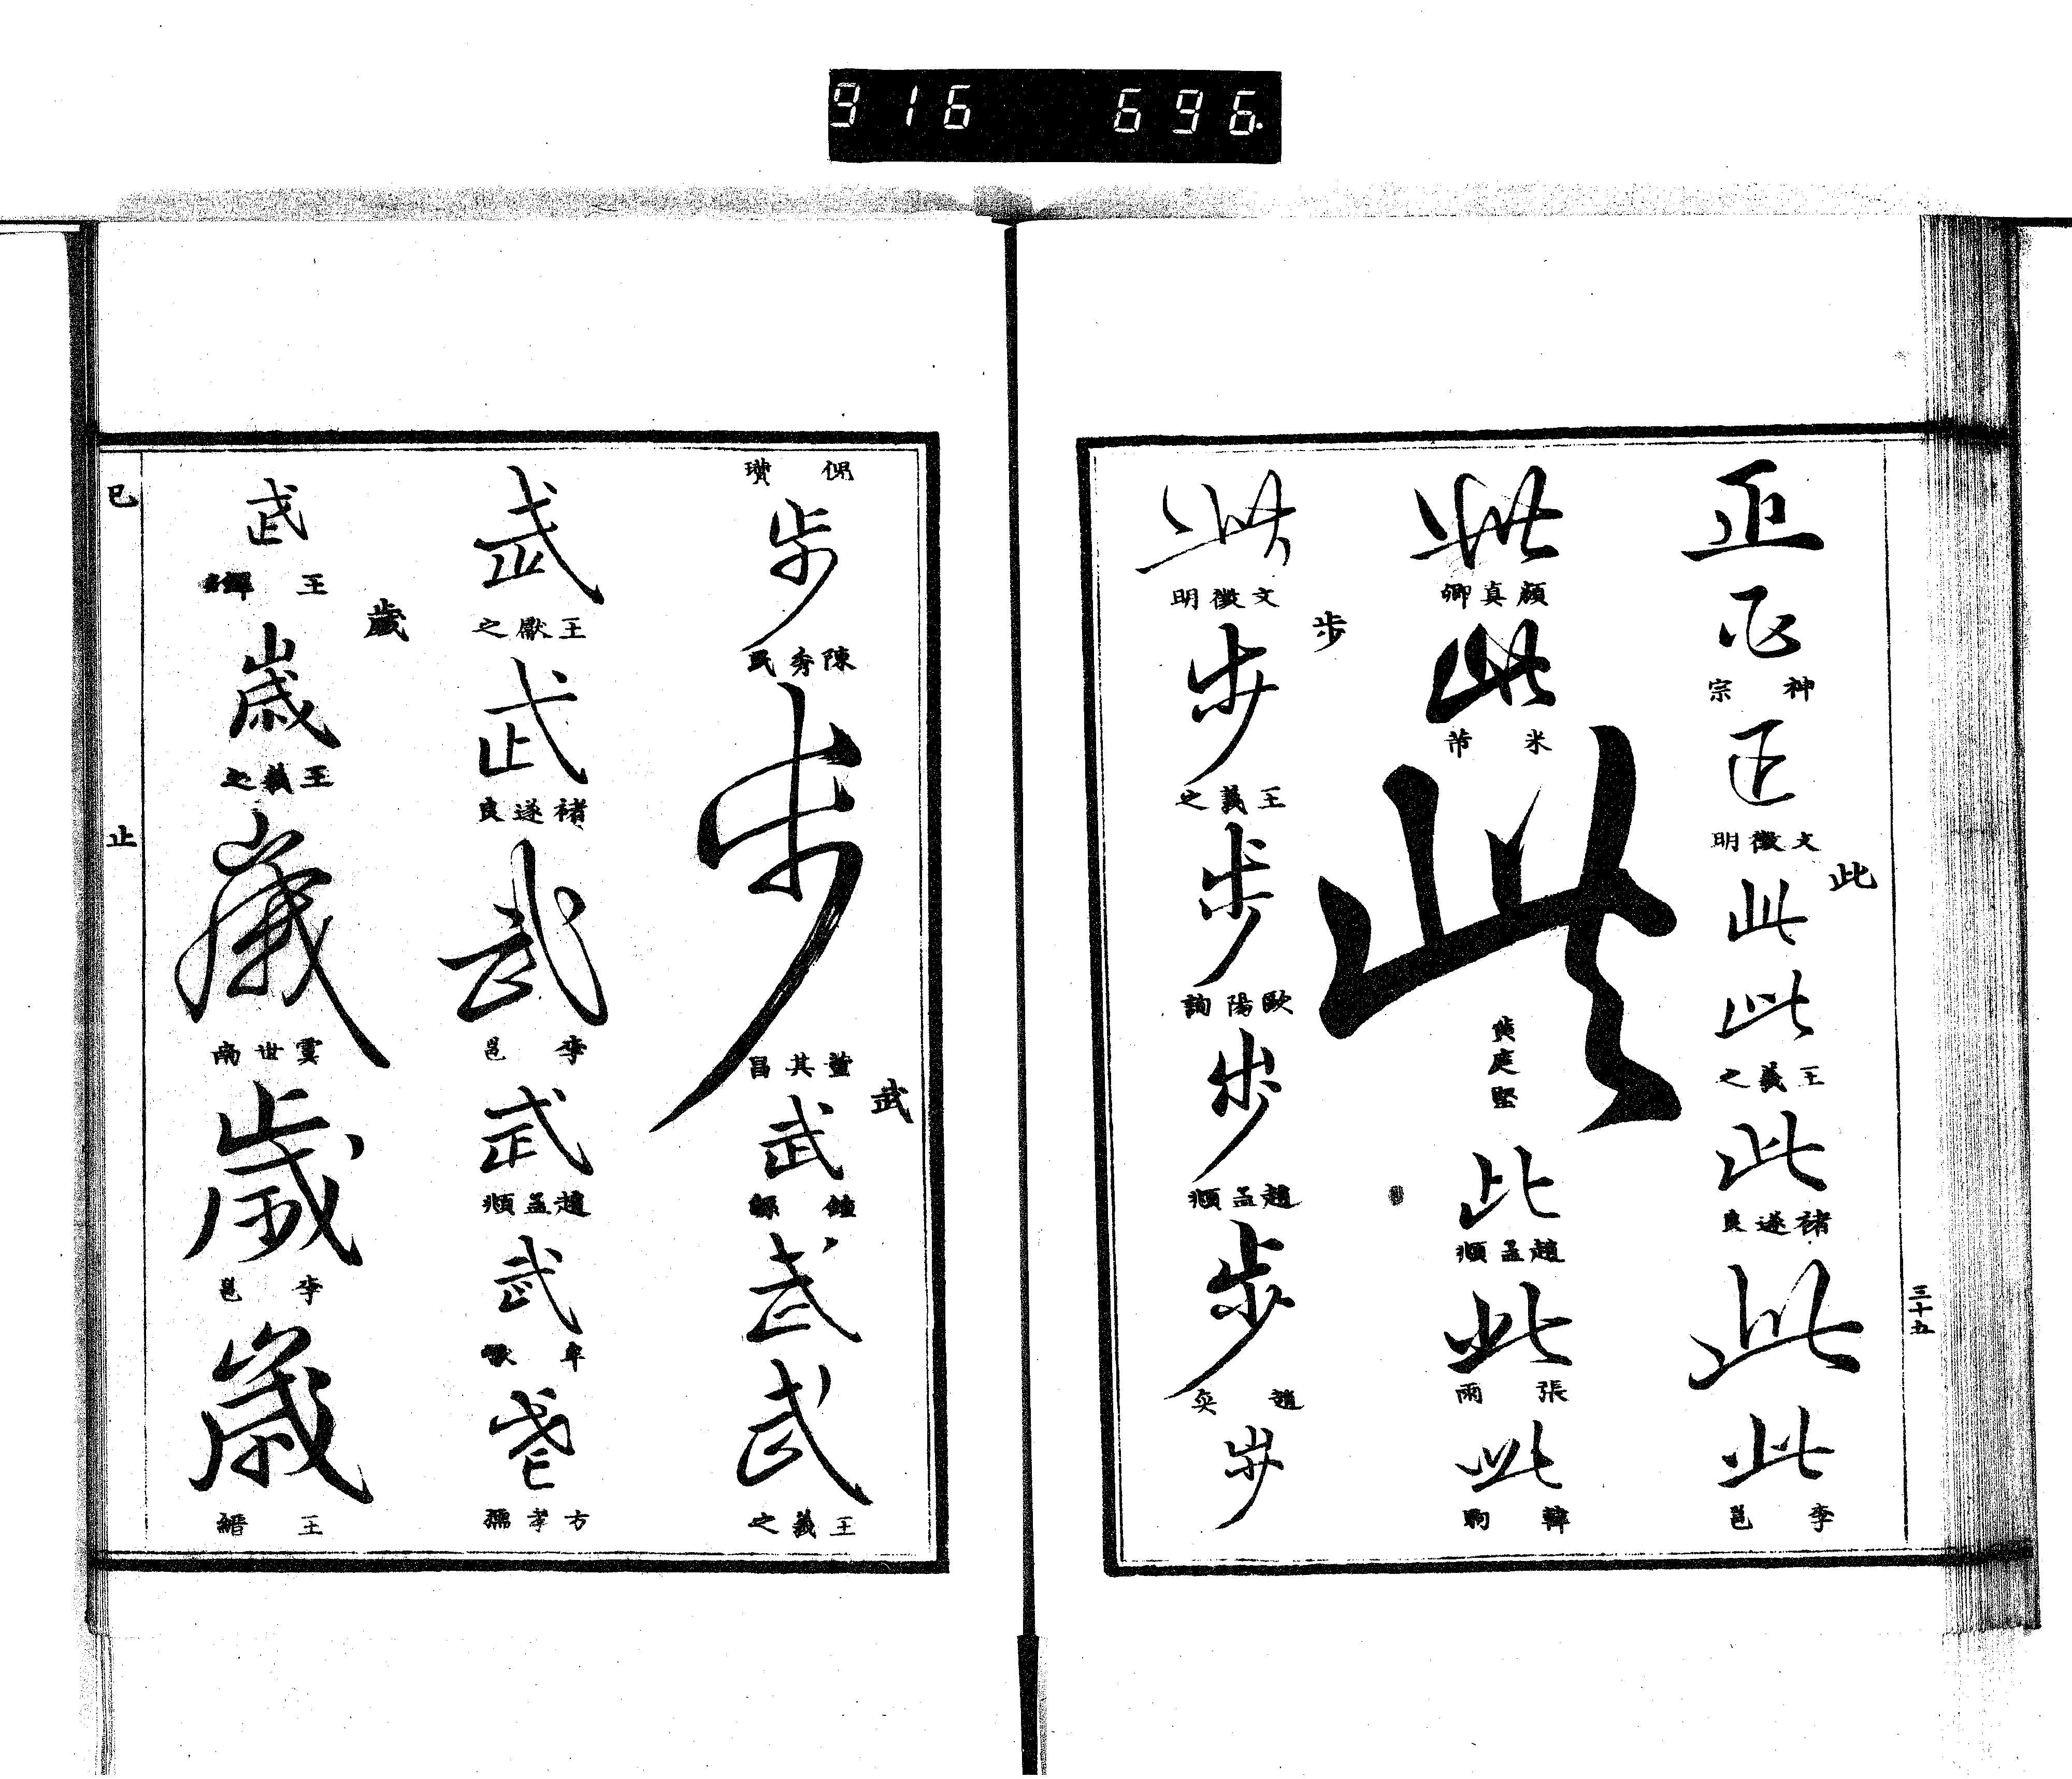 916 696.
三十五
正
正
神宗
正
文徵明
此
此
此
王羲之
此
褚遂良
此
此
李邕
此
顏真卿
此
米芾
此
黄庭堅
此
趙孟頫
此
張雨
此
韓昫
此
文徵明
步
步
王羲之
步
歐陽詢
步
趙孟頫
步
趙奕
步
倪瓚
步
陳秀民
步
董其昌
武
武
鍾繇
武
武
王羲之
武
王獻之
武
褚遂良
武
李邕
武
趙孟頫
武
牟巘
武
方孝孺
武
王鐸
歲
歲
王羲之
歲
虞世南
歲
李邕
歲
王縉
巳
止